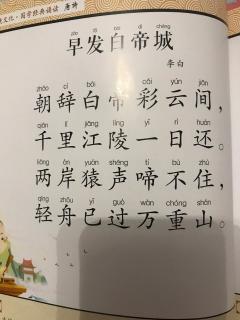 文化·国学经典诵读 唐诗
zǎo fā bái dì chéng
早发白帝城
李白
zhāo cí bái dì cǎi yún jiān
朝辞白帝彩云间，
qiān lǐ jiāng líng yī rì huán
千里江陵一日还。
liǎng àn yuán shēng tí bú zhù
两岸猿声啼不住，
qīng zhōu yǐ guò wàn chóng shān
轻舟已过万重山。